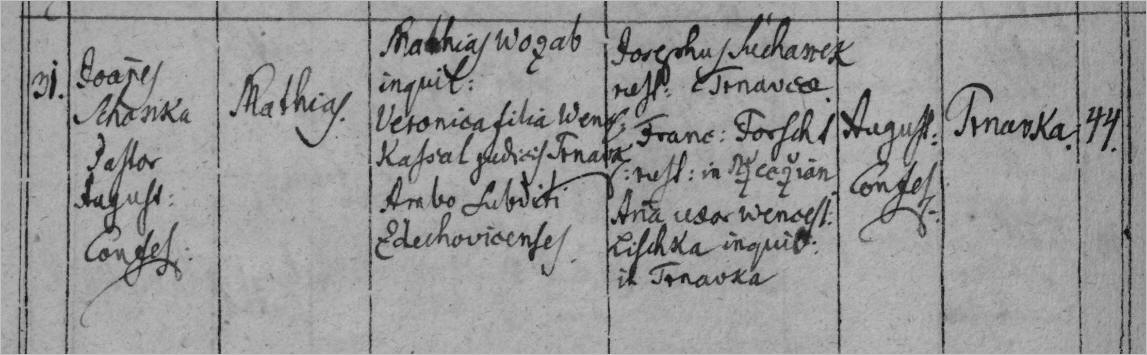 31.
Joan̄es
Schanka
Pastor
August:
Confes:
Mathias.
Mathias Wozab
inquil:
Veronica filia Wenc:
Kassal judicis Trnavk
Ambo Subditi
Zdechovicenses
Josephus Suchanek
rust: e Trnavca
Franc: Forscht
rust: in
An̄a uxor Wencesl:
Lischka inquil:
in Trnavka
August:
Confes:
Trnavka.
44.